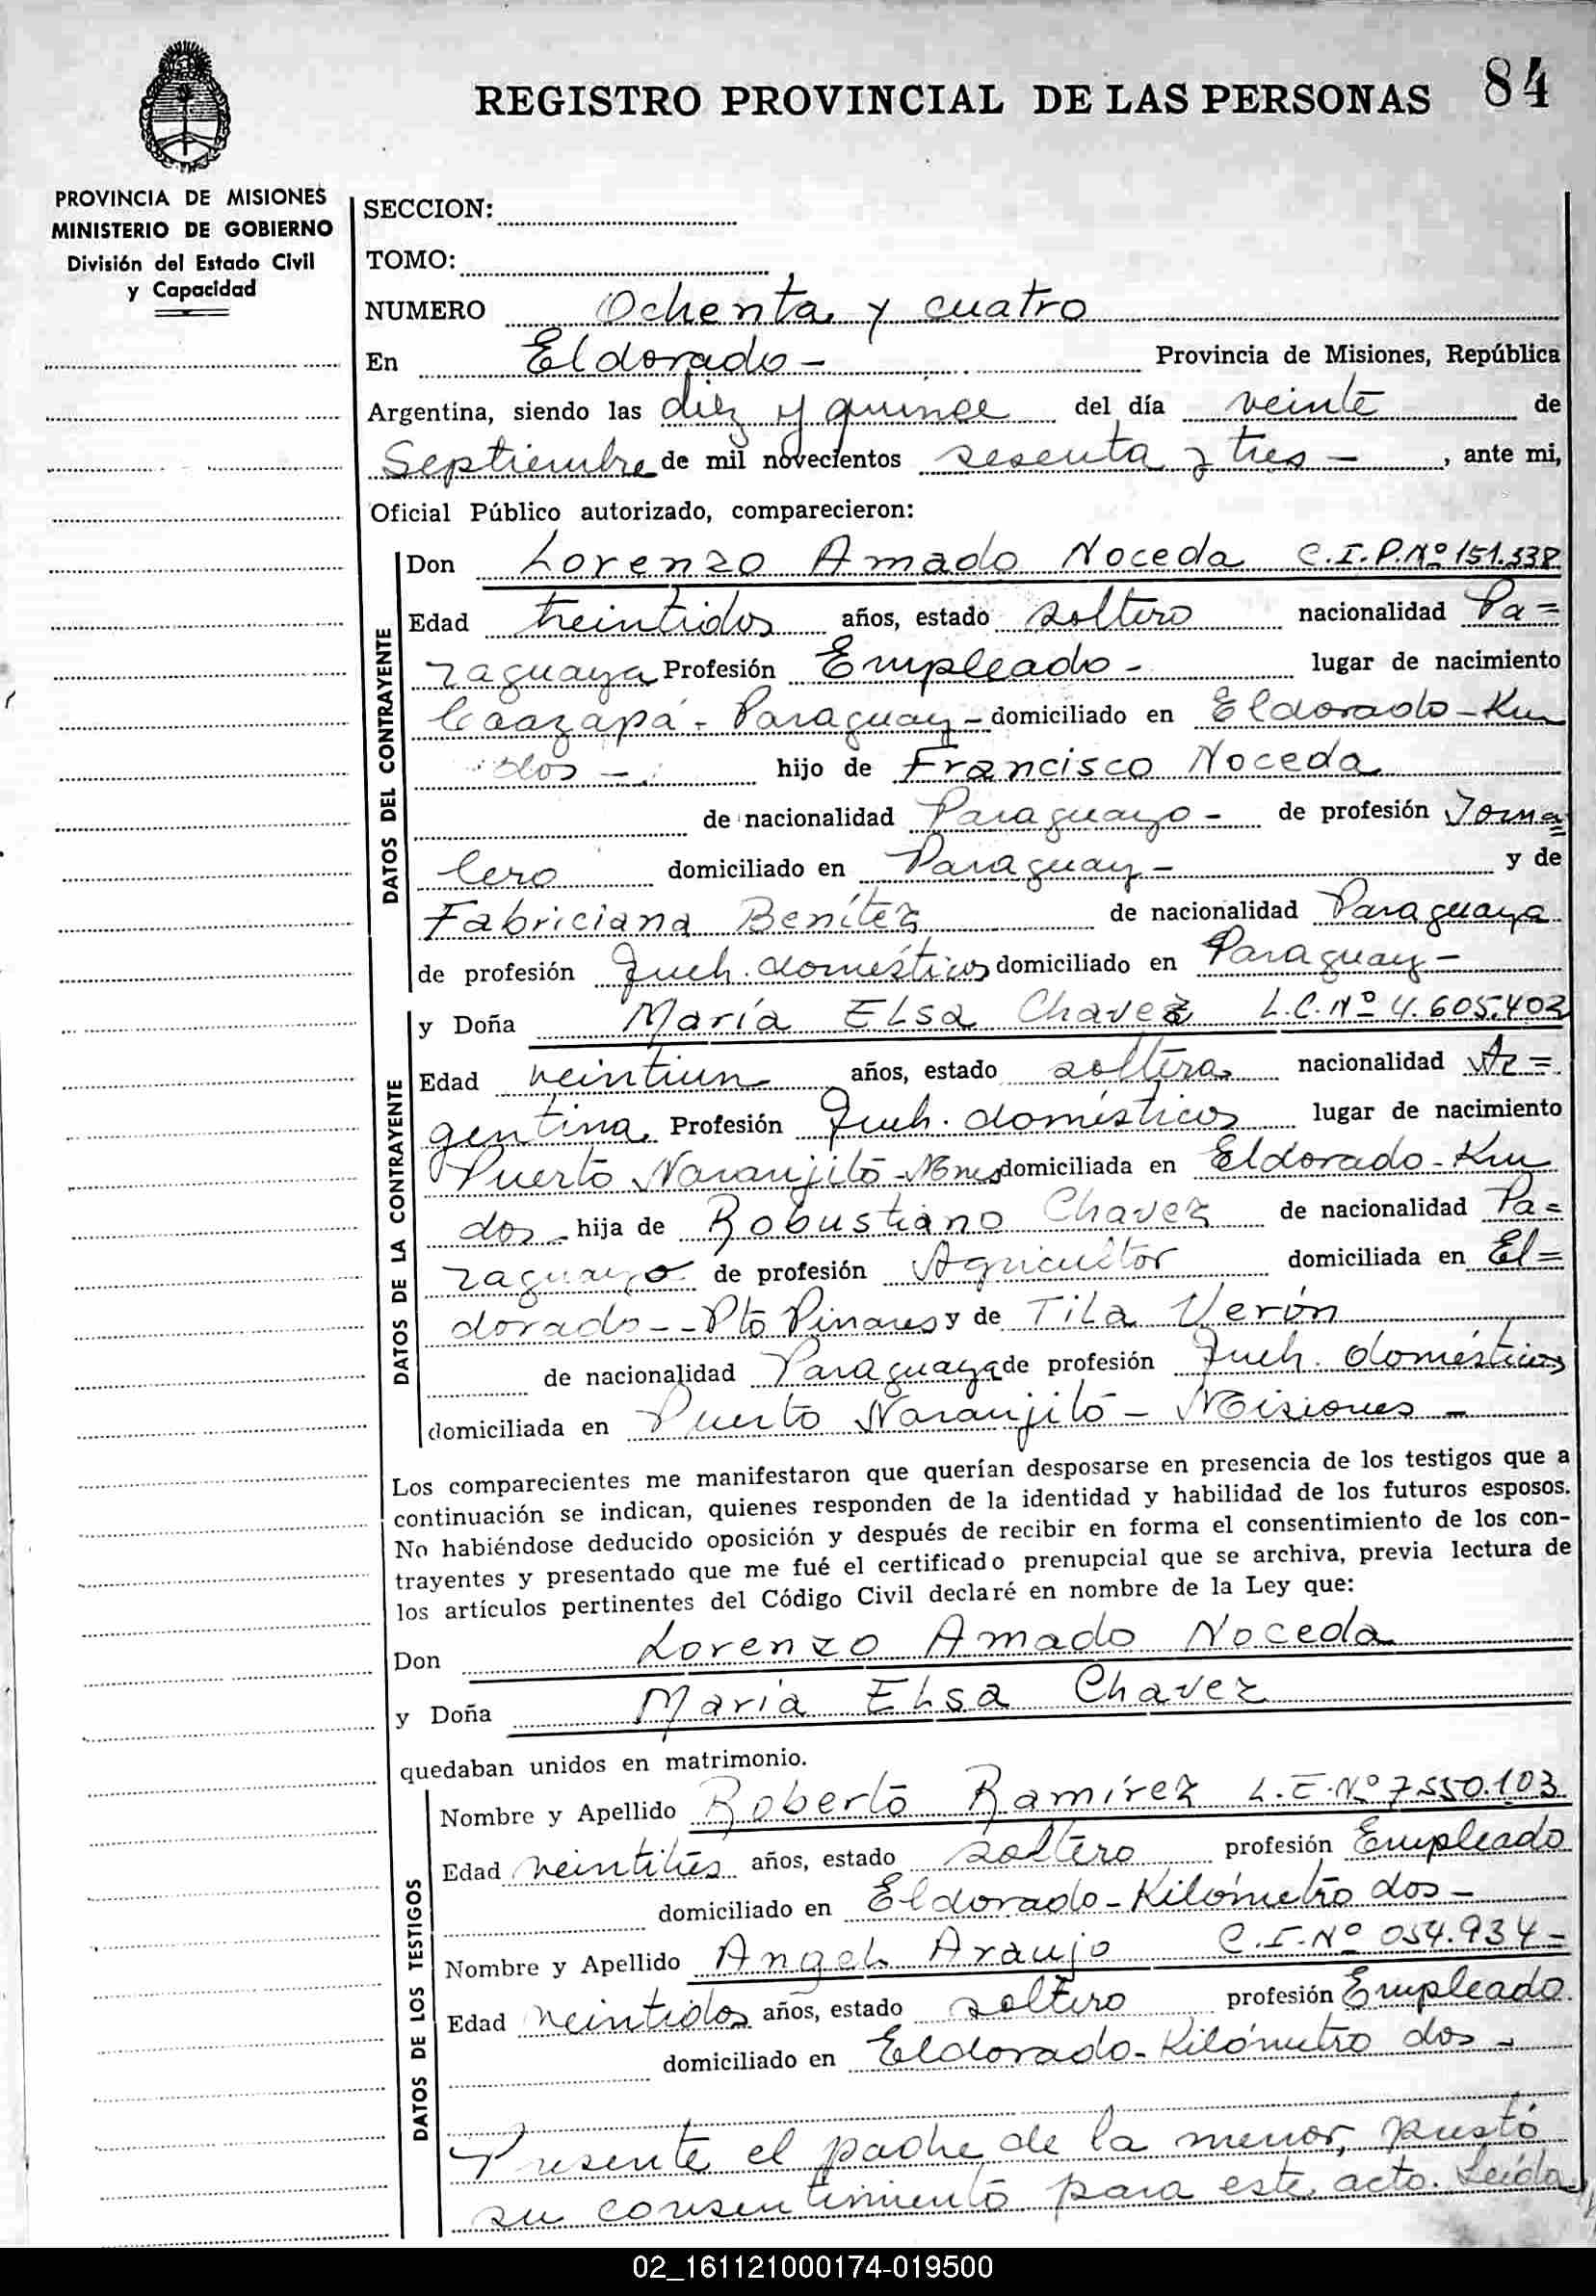 REGISTRO PROVINCIAL DE LAS PERSONAS 84
PROVINCIA DE MISIONES
MINISTERIO DE GOBIERNO
División del Estado Civil
y Capacidad
SECCION:
TOMO:
NUMERO Ochenta y cuatro
En Eldorado - Provincia de Misiones, República
Argentina, siendo las diez y quince del día veinte de
Septiembre de mil novecientos sesenta y tres - , ante mi,
Oficial Público autorizado, comparecieron:
DATOS DEL CONTRAYENTE
Don Lorenzo Amado Noceda C.I.P.Nº 151.338
Edad treintidos años, estado soltero nacionalidad Pa=
raguaya Profesión Empleado - lugar de nacimiento
Caazapá - Paraguay - domiciliado en Eldorado - Km
dos - hijo de Francisco Noceda
de nacionalidad Paraguayo - de profesión Jorna=
lero domiciliado en Paraguay - y de
Fabriciana Benítez de nacionalidad Paraguaya
de profesión Queh. domésticos domiciliado en Paraguay -
DATOS DE LA CONTRAYENTE
y Doña María Elsa Chavez L.C.Nº 4.605.402
Edad veintiun años, estado soltera nacionalidad Ar=
gentina Profesión Queh. domésticos lugar de nacimiento
Puerto Naranjito - Mnes domiciliada en Eldorado - Km
dos - hija de Robustiano Chavez de nacionalidad Pa=
raguayo de profesión Agricultor domiciliada en El=
dorado - - Pto Pinares y de Tila Verón
de nacionalidad Paraguaya de profesión Queh. domésticos
domiciliada en Puerto Naranjito - Misiones -
Los comparecientes me manifestaron que querían desposarse en presencia de los testigos que a
continuación se indican, quienes responden de la identidad y habilidad de los futuros esposos.
No habiéndose deducido oposición y después de recibir en forma el consentimiento de los con-
trayentes y presentado que me fué el certificado prenupcial que se archiva, previa lectura de
los artículos pertinentes del Código Civil declaré en nombre de la Ley que:
Don Lorenzo Amado Noceda
y Doña María Elsa Chavez
quedaban unidos en matrimonio.
DATOS DE LOS TESTIGOS
Nombre y Apellido Roberto Ramírez L.E.Nº 7550.103
Edad veintitrés años, estado soltero profesión Empleado
domiciliado en Eldorado - Kilómetro dos -
Nombre y Apellido Angel Araujo C.I.Nº 054.934 =
Edad veintidos años, estado soltero profesión Empleado
domiciliado en Eldorado - Kilómetro dos -
Presente el padre de la menor, prestó
su consentimiento para este acto. Leída
02_161121000174-019500